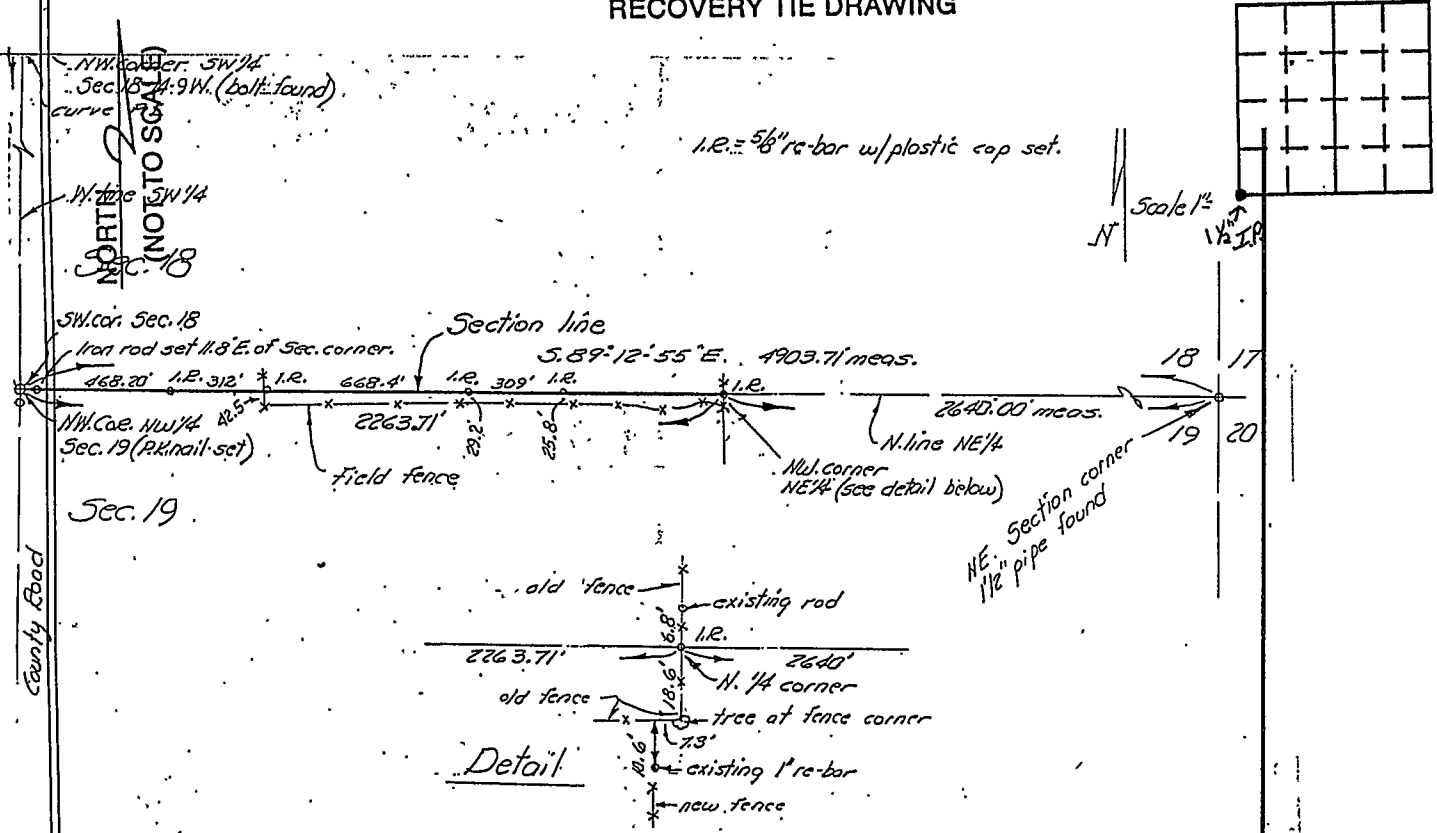 RECOVERY TIE DRAWING
NW. corner SW 1/4
Sec. 18 (bolt found)
curve
W. line SW 1/4
NORTH
(NOT TO SCALE)
Sec. 18
I.R. = 5/8" re-bar w/plastic cap set.
N
Scale 1"=
1 1/2" I.P.
SW. cor. Sec. 18
Iron rod set 11.8' E. of Sec. corner.
Section line
S. 89°-12'-55" E. 4903.71' meas.
468.20' I.R. 312' I.R. 668.4' I.R. 309' I.R. I.R.
18 17
19 20
42.5'
2263.71'
29.2'
25.8'
2640.00' meas.
N. line NE 1/4
NW. Cor. NW 1/4
Sec. 19 (P.K. nail set)
Field fence
NW. corner
NE 1/4 (see detail below)
Sec. 19
NE. Section corner
1 1/2" pipe found
County Road
old fence
existing rod
6.8'
I.R.
2263.71'
2640'
N. 1/4 corner
18.6'
old fence
tree at fence corner
7.3'
10.6'
Detail
existing 1" re-bar
new fence